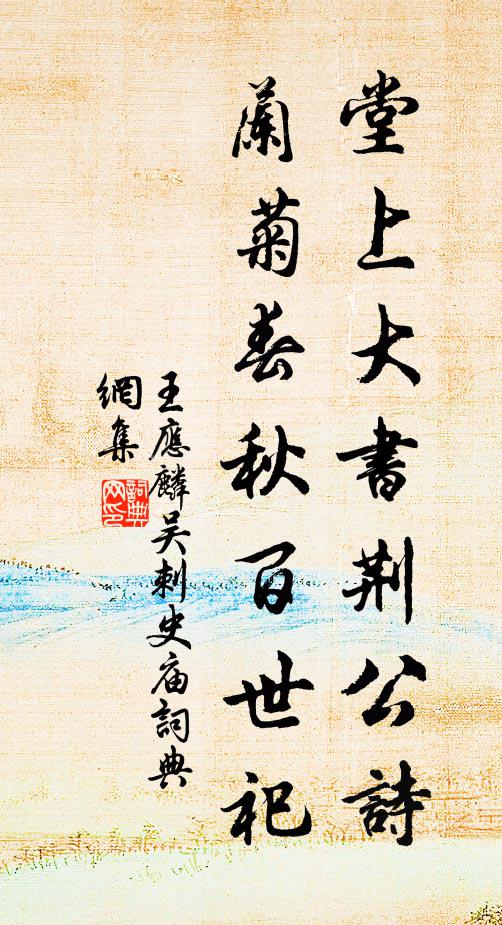 堂上大書荆公詩
蘭菊春秋百世祀
王應麟吴刺史庙詞典
網集
詞典
网印